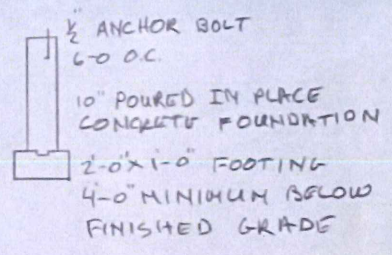 1/2" ANCHOR BOLT
6-0 O.C.
10" POURED IN PLACE
CONCRETE FOUNDATION
2'-0" X 1'-0" FOOTING
4'-0" MINIMUM BELOW
FINISHED GRADE